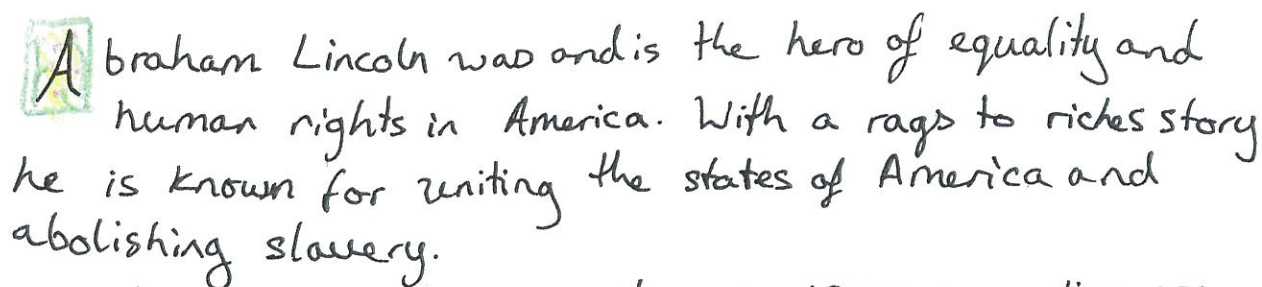 Abraham Lincoln was and is the hero of equality and
human rights in America. With a rags to riches story
he is known for uniting the states of America and
abolishing slavery.